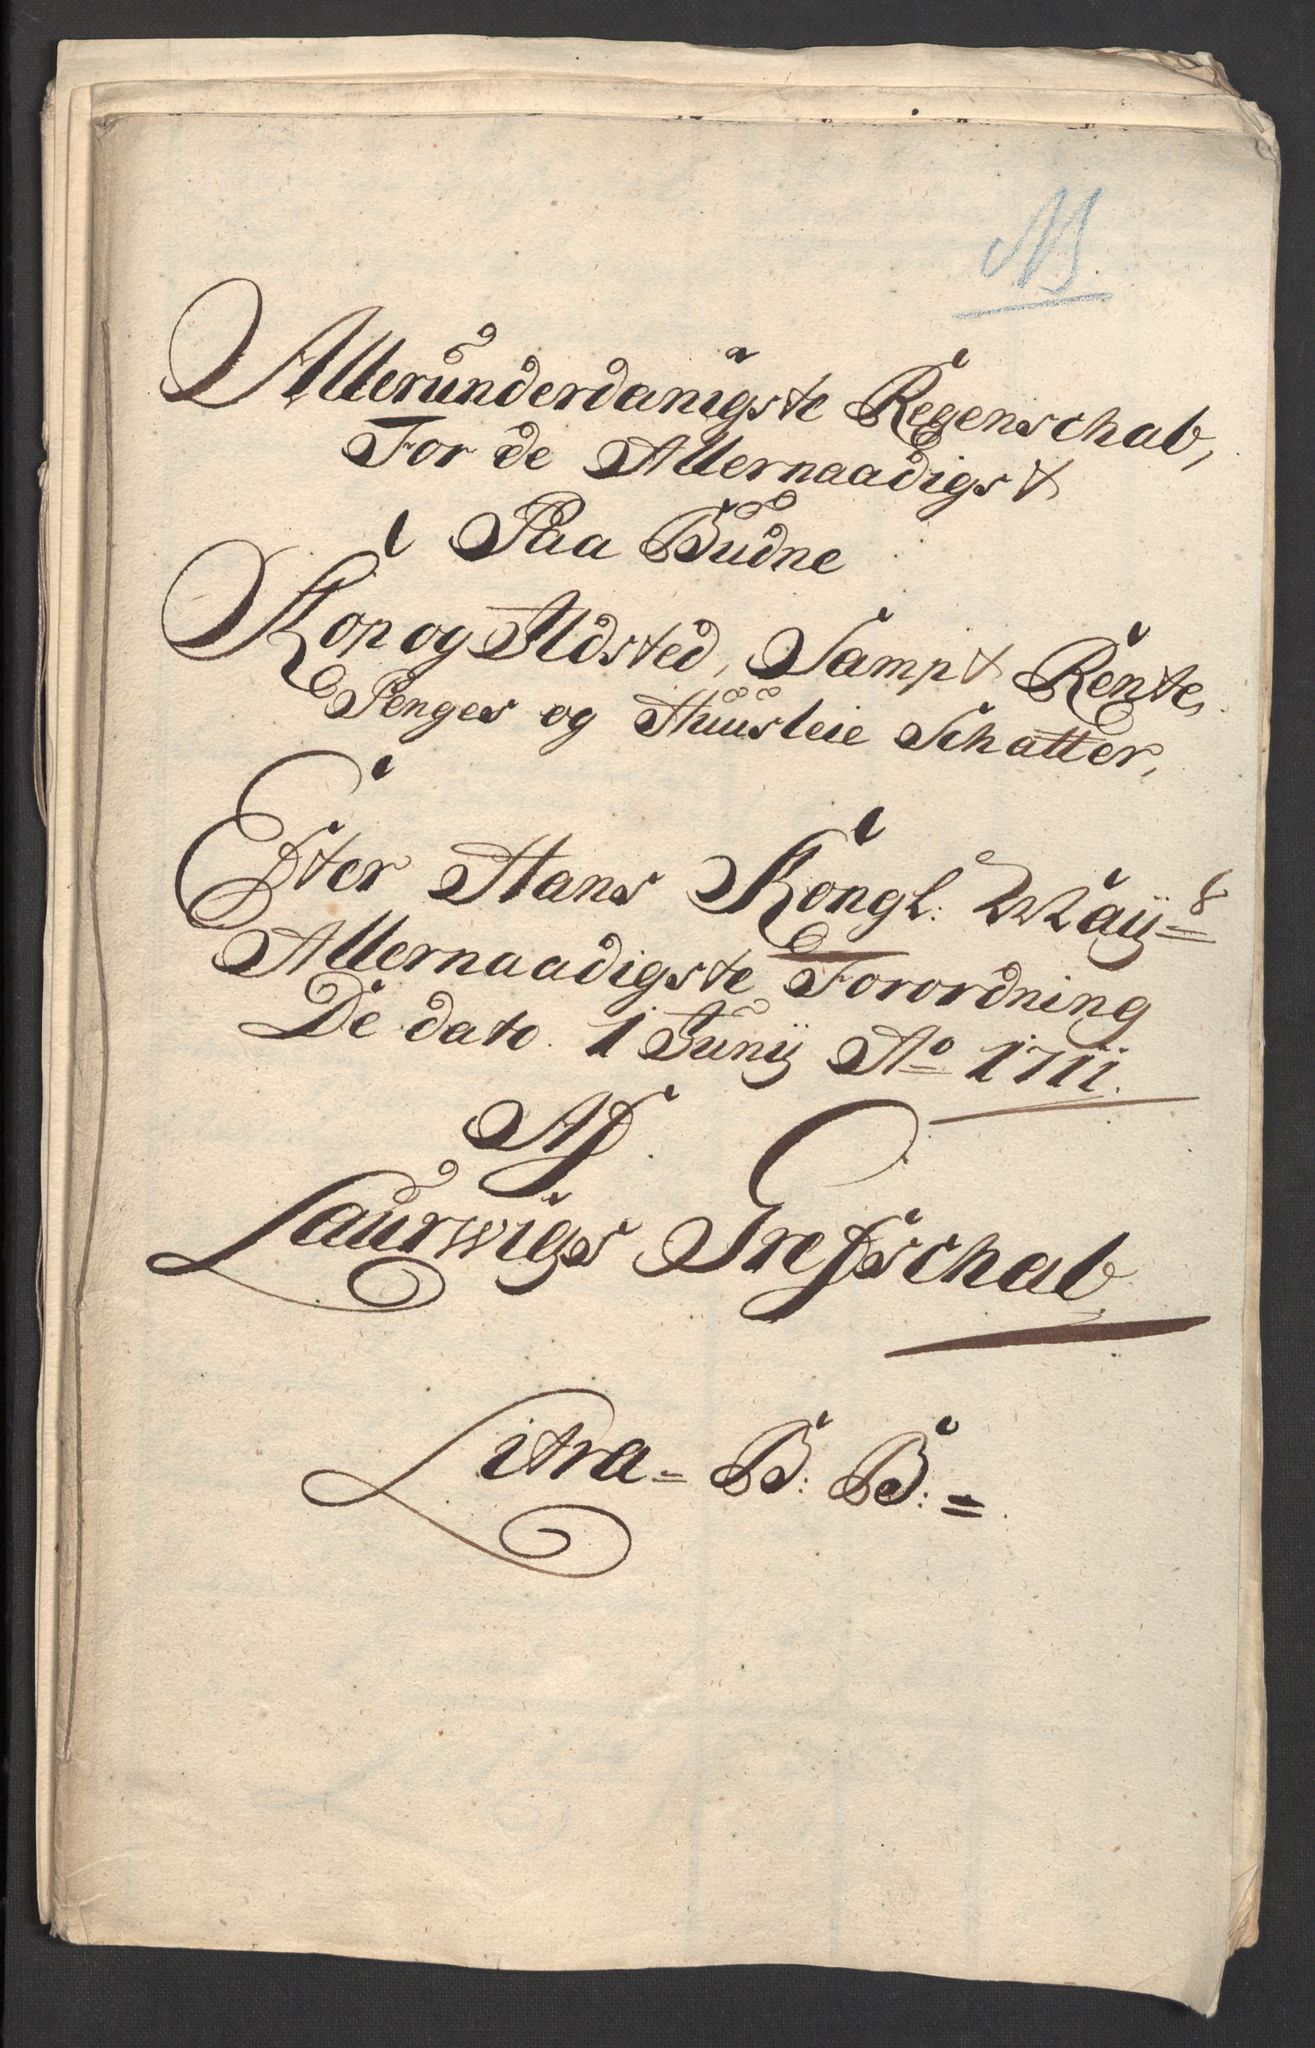 NB
Allerunderdanigste Regenschab,
For de Allernaadigst
Paa Budne
Kop og Ildsted, Sampt Rente,
Penges og Huusleie Schatter,
Efter Hans Kongl: Maÿ=s
Allernaadigste Forordning
De dato. 1 Junij Ao 1711.
Af
Laurwigs Grefschab
Litra = B: B: =